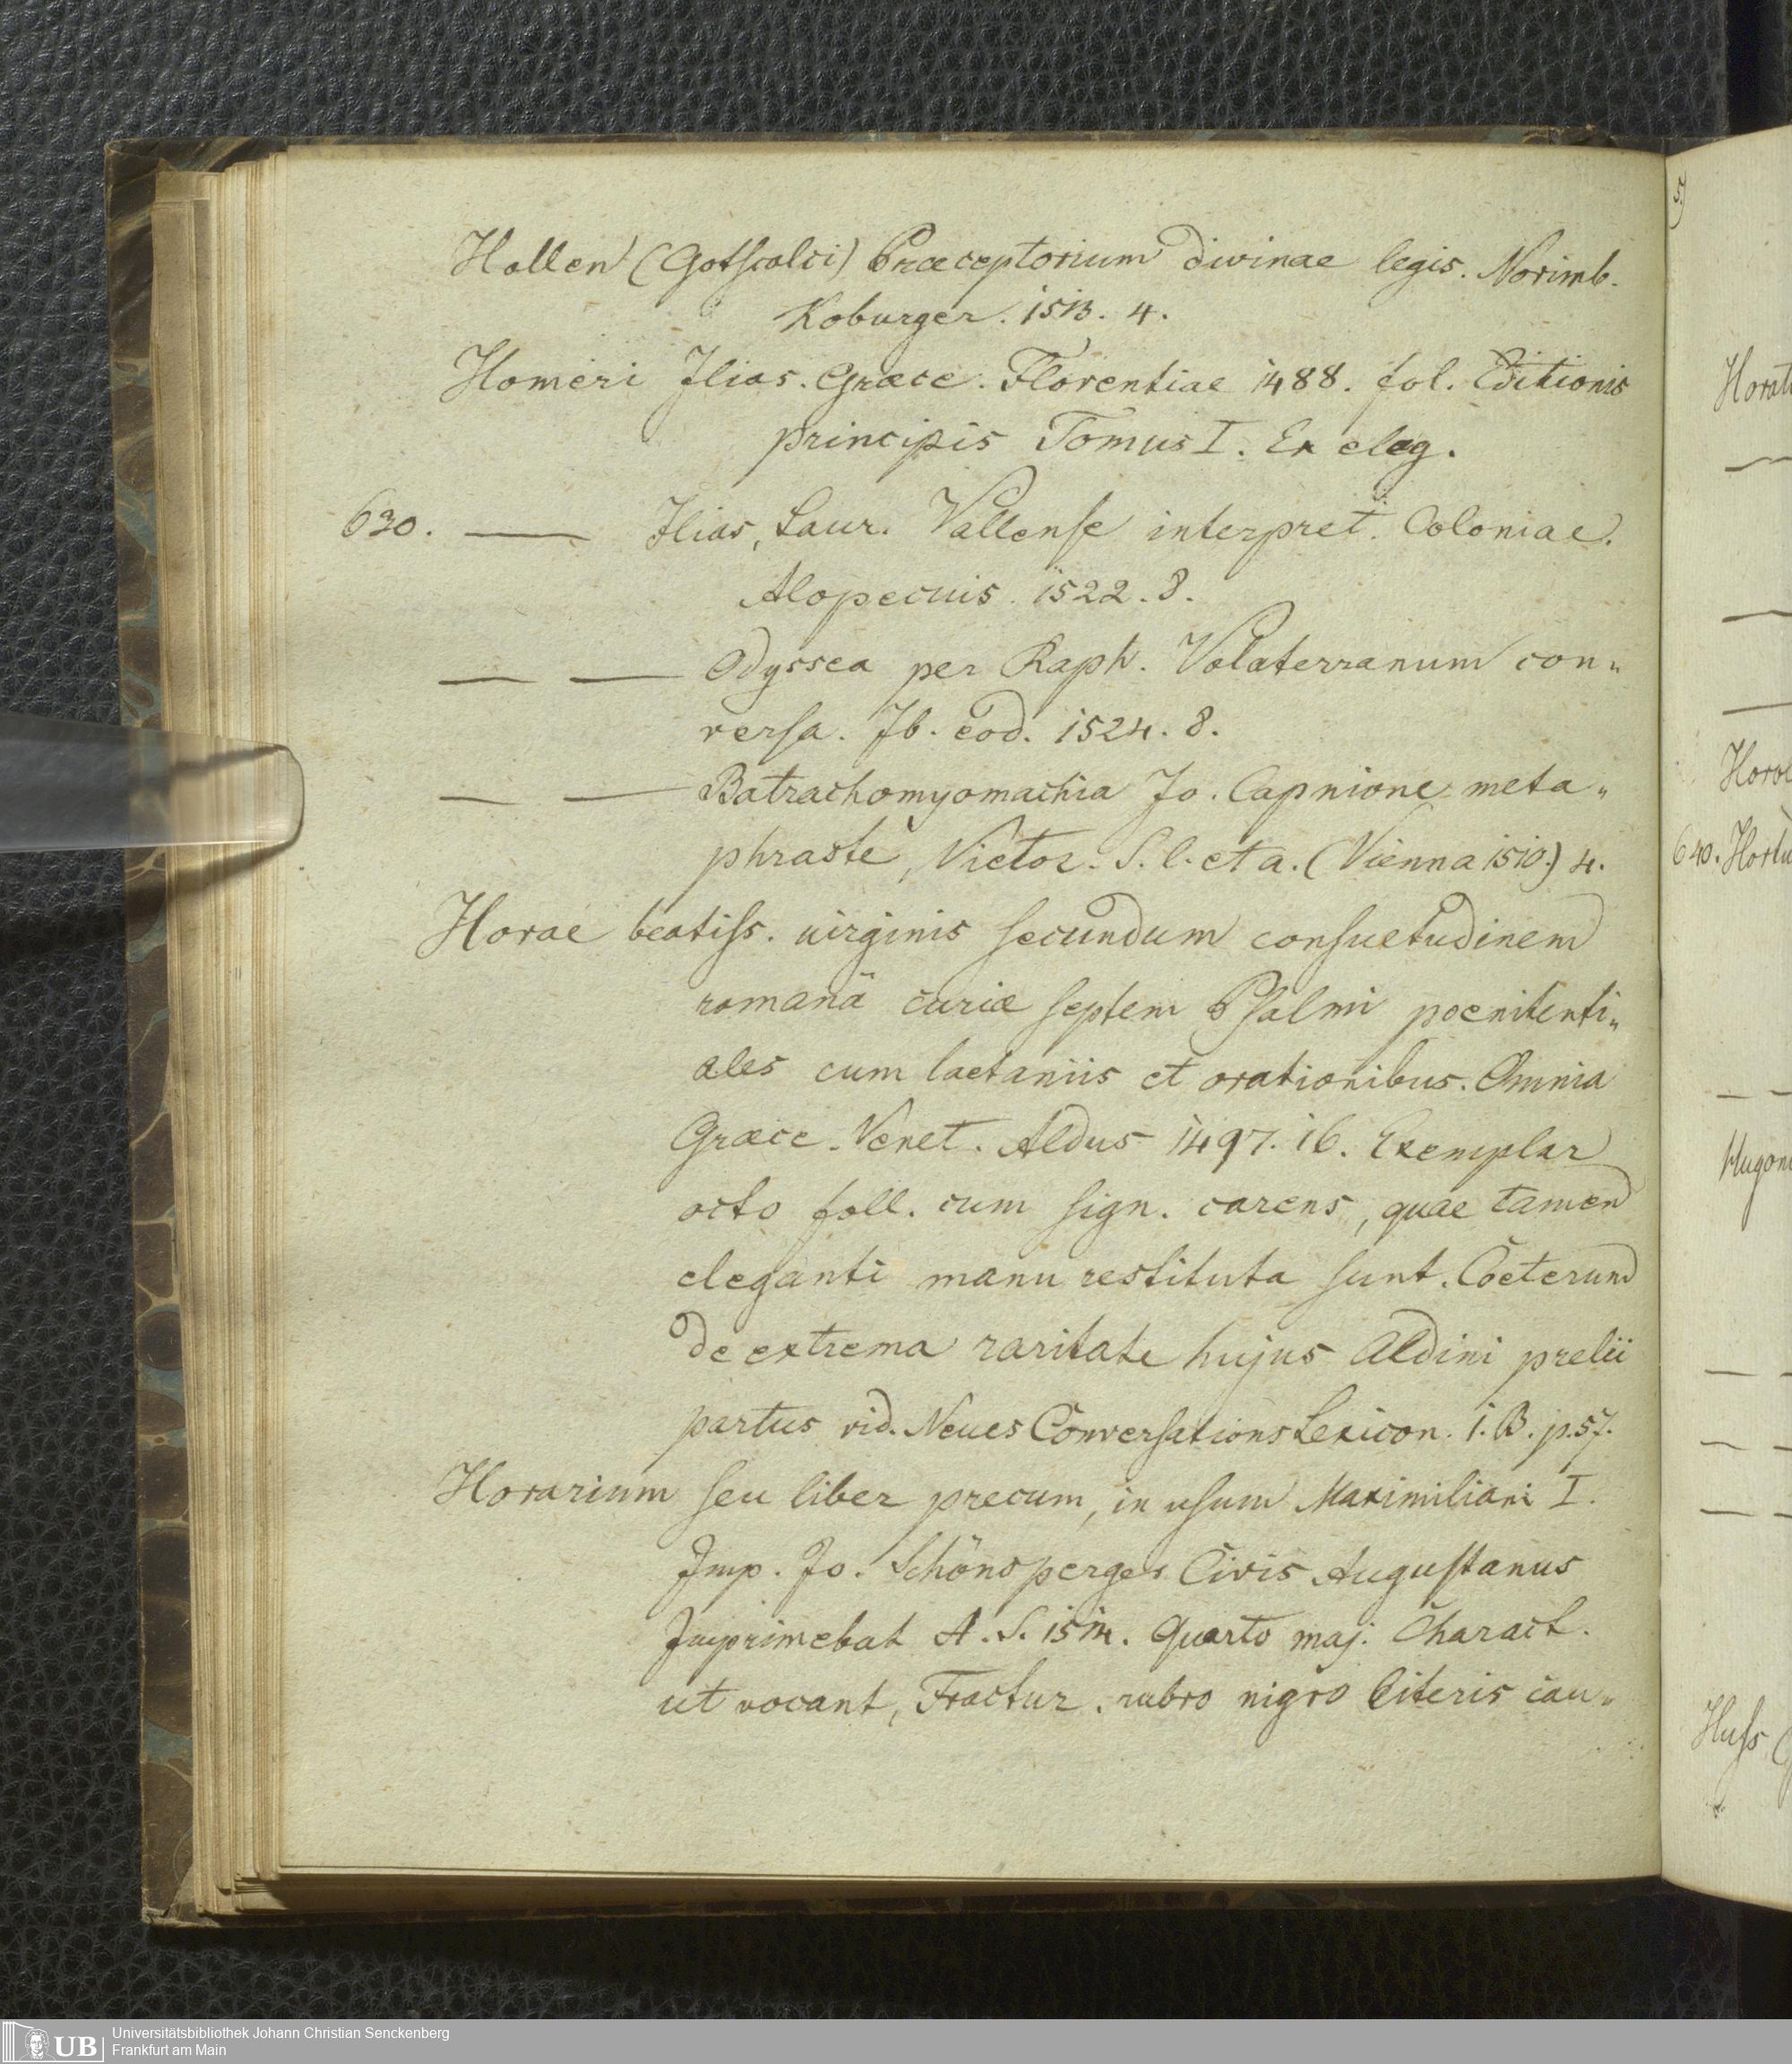 Hollen (Gotscalci) Præceptorium divinae legis. Norimb.
Koburger. 1513. 4.
Homeri Ilias. Græce. Florentiae 1488. fol. Editionis
principis Tomus I. Ex eleg.
630. — Ilias, Laur. Vallense interpret. Coloniae.
Alopecuis. 1522. 8.
— — Odyssea per Raph. Volaterranum con„
versa. Ib. eod. 1524. 8.
— — Batrachomyomachia Jo. Capnione meta„
phraste, Victor. S. l. et a. (Vienna 1510.) 4.
Horae beatiss. virginis secundum consuetudinem
romanā curiæ septem Psalmi poenitenti„
ales cum laetaniis et orationibus. Omnia
Græce. Venet. Aldus 1497. 16. Exemplar
octo foll. cum sign. carens, quae tamen
eleganti manu restituta sunt. Coeterum
de extrema raritate hujus Aldini prelii
partus vid. Neues Conversations Lexicon. 1. B. p. 57.
Horarium seu liber precum, in usum Maximiliani I.
Imp. Jo. Schönsperger Civis Augustanus
Imprimebat A. S. 1514. Quarto maj. Charact.
ut vocant, Fractur. rubro nigro literis cau„
5)
Horati
Horol
640. Hortu
Hugoni
Huss
UB
Universitätsbibliothek Johann Christian Senckenberg
Frankfurt am Main